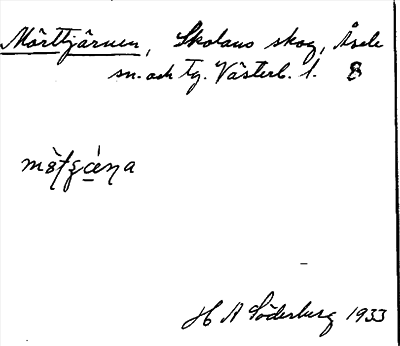 Mörttjärnen, Skolans skog, Åsele
sn. och tg. Västerb. l.
H A Söderberg 1933